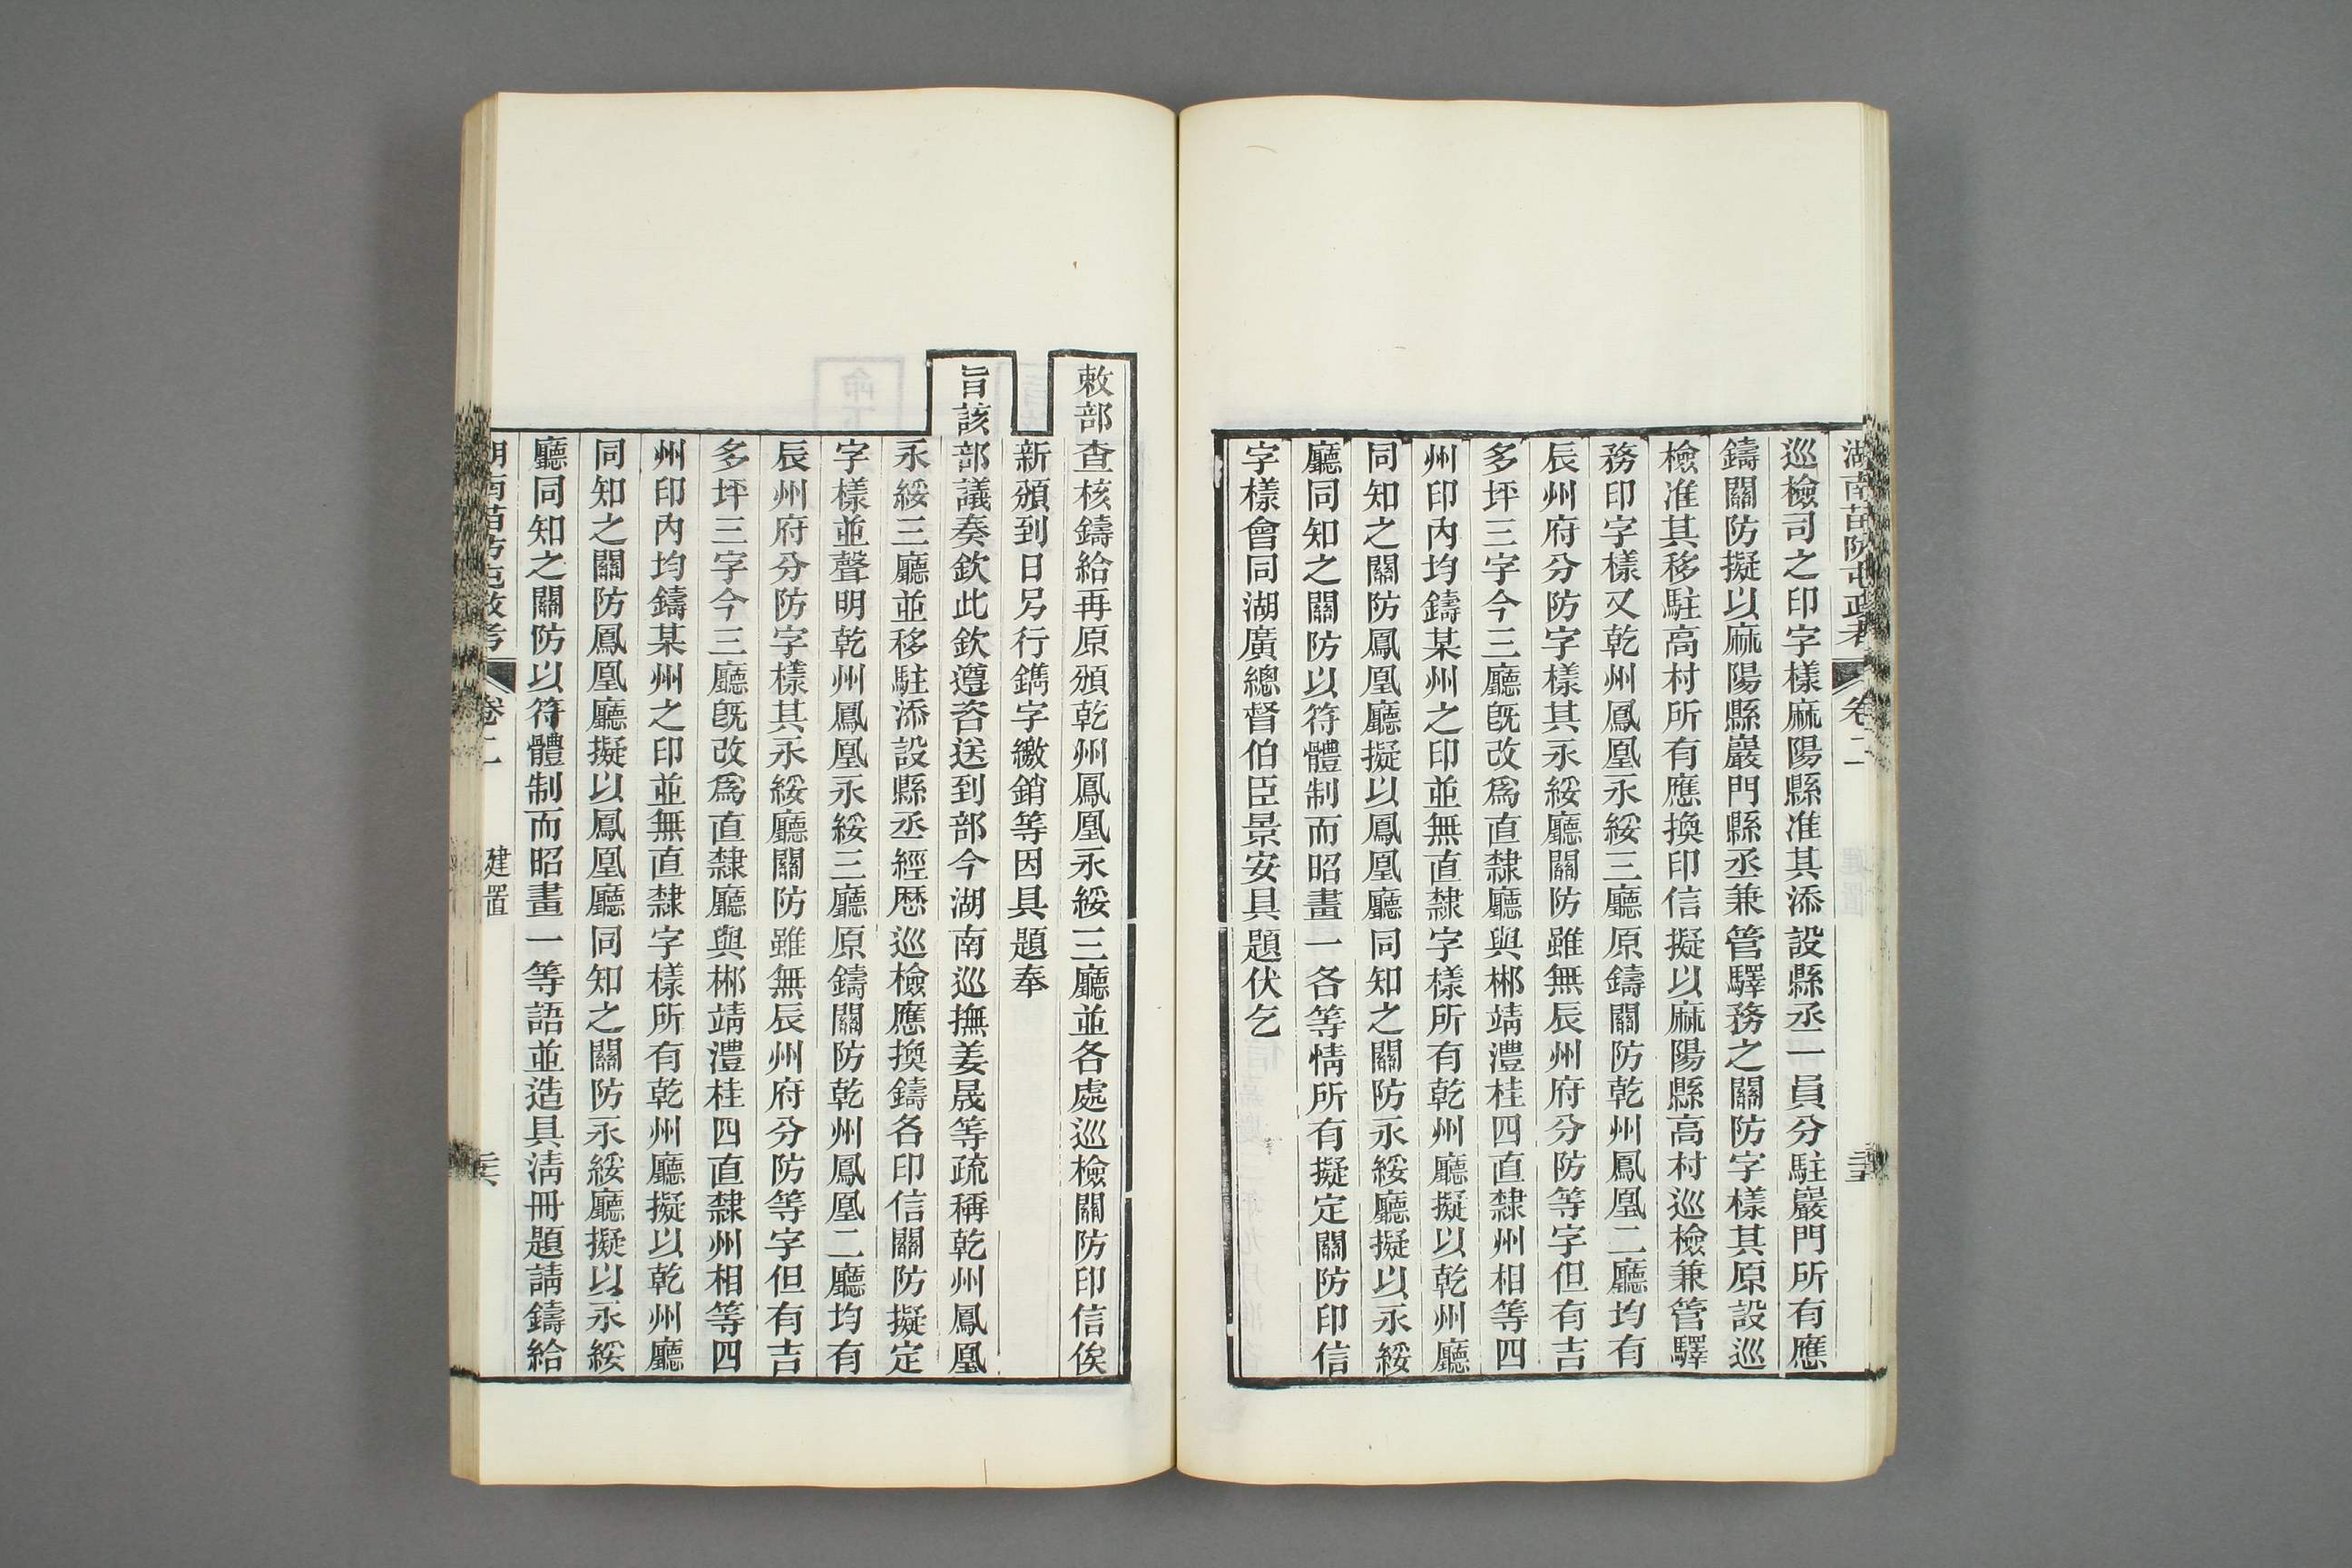 湖南苗防屯政考 卷二 三五
巡檢司之印字樣麻陽縣准其添設縣丞一員分駐巖門所有應
鑄關防擬以麻陽縣巖門縣丞兼管驛務之關防字樣其原設巡
檢准其移駐高村所有應換印信擬以麻陽縣高村巡檢兼管驛
務印字樣又乾州鳳凰永綏三廳原鑄關防乾州鳳凰二廳均有
辰州府分防字樣其永綏廳關防雖無辰州府分防等字但有吉
多坪三字今三廳旣改爲直隸廳與郴靖澧桂四直隸州相等四
州印內均鑄某州之印並無直隸字樣所有乾州廳擬以乾州廳
同知之關防鳳凰廳擬以鳳凰廳同知之關防永綏廳擬以永綏
廳同知之關防以符體制而昭畫一各等情所有擬定關防印信
字樣會同湖廣總督伯臣景安具題伏乞
敕部查核鑄給再原頒乾州鳳凰永綏三廳並各處巡檢關防印信俟
新頒到日另行鐫字繳銷等因具題奉
旨該部議奏欽此欽遵咨送到部今湖南巡撫姜晟等疏稱乾州鳳凰
永綏三廳並移駐添設縣丞經歷巡檢應換鑄各印信關防擬定
字樣並聲明乾州鳳凰永綏三廳原鑄關防乾州鳳凰二廳均有
辰州府分防字樣其永綏廳關防雖無辰州府分防等字但有吉
多坪三字今三廳旣改爲直隸廳與郴靖澧桂四直隸州相等四
州印內均鑄某州之印並無直隸字樣所有乾州廳擬以乾州廳
同知之關防鳳凰廳擬以鳳凰廳同知之關防永綏廳擬以永綏
廳同知之關防以符體制而昭畫一等語並造具淸冊題請鑄給
湖南苗防屯政考 卷二 建置 三六